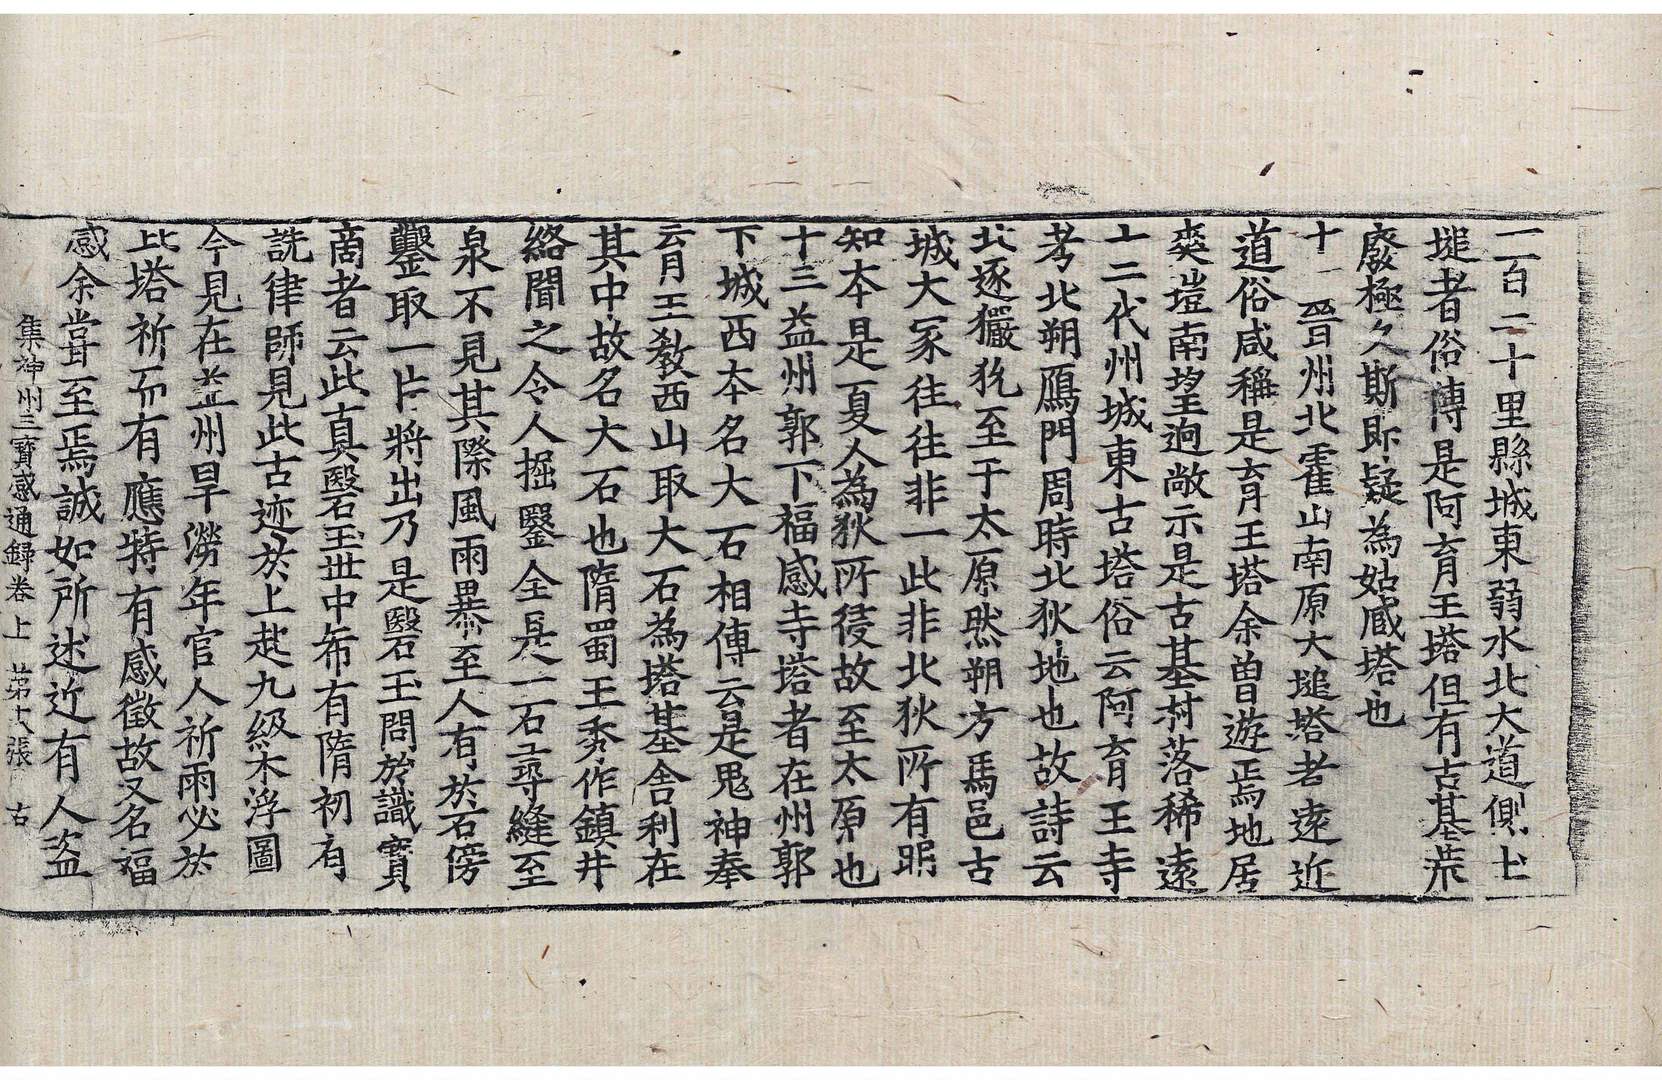 一百二十里縣城東弱水北大道側土
塠者俗傳是阿育王塔但有古基荒
廢極久斯即疑為姑臧塔也
十一晉州北霍山南原大塠塔者遠近
道俗咸稱是育王塔余曾遊焉地居
爽塏南望逈敞示是古基村落稀遠
十二代州城東古塔俗云阿育王寺
考北朔鴈門周時北狄地也故詩云
北逐玁狁至于太原然朔方馬邑古
城大冢往往非一此非北狄所有明
知本是夏人為狄所侵故至太原也
十三益州郭下福感寺塔者在州郭
下城西本名大石相傳云是鬼神奉
育王教西山取大石為塔基舍利在
其中故名大石也隋蜀王秀作鎮井
絡聞之令人掘鑿全是一石尋縫至
泉不見其際風雨暴至人有於石傍
鑿取一片將出乃是瑿玉問於識寶
商者云此真瑿玉世中希有隋初有
詵律師見此古迹於上起九級木浮圖
今見在益州旱澇年官人祈雨必於
此塔祈而有應特有感徵故又名福
感余嘗至焉誠如所述近有人盜
集神州三寶感通録卷上 第六張 右